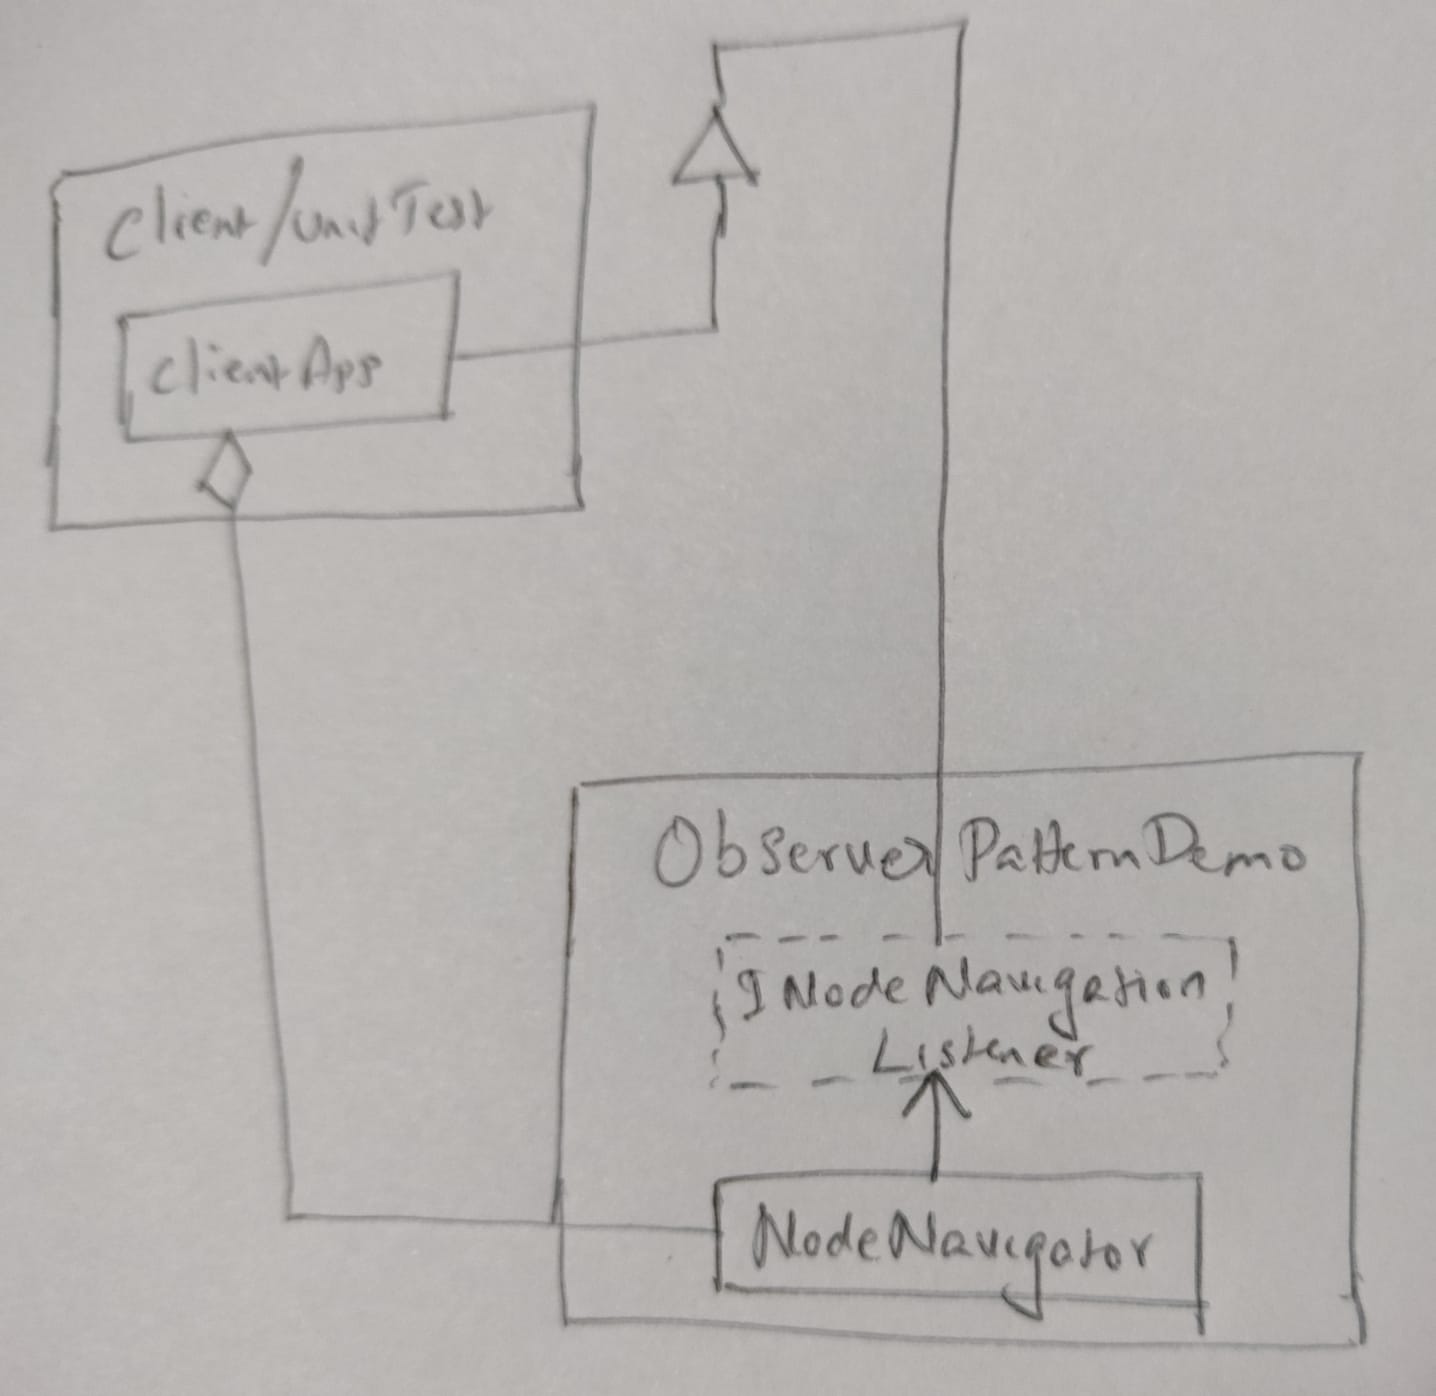 Client/UnitTest
ClientApp
ObserverPatternDemo
INodeNavigation
Listener
NodeNavigator